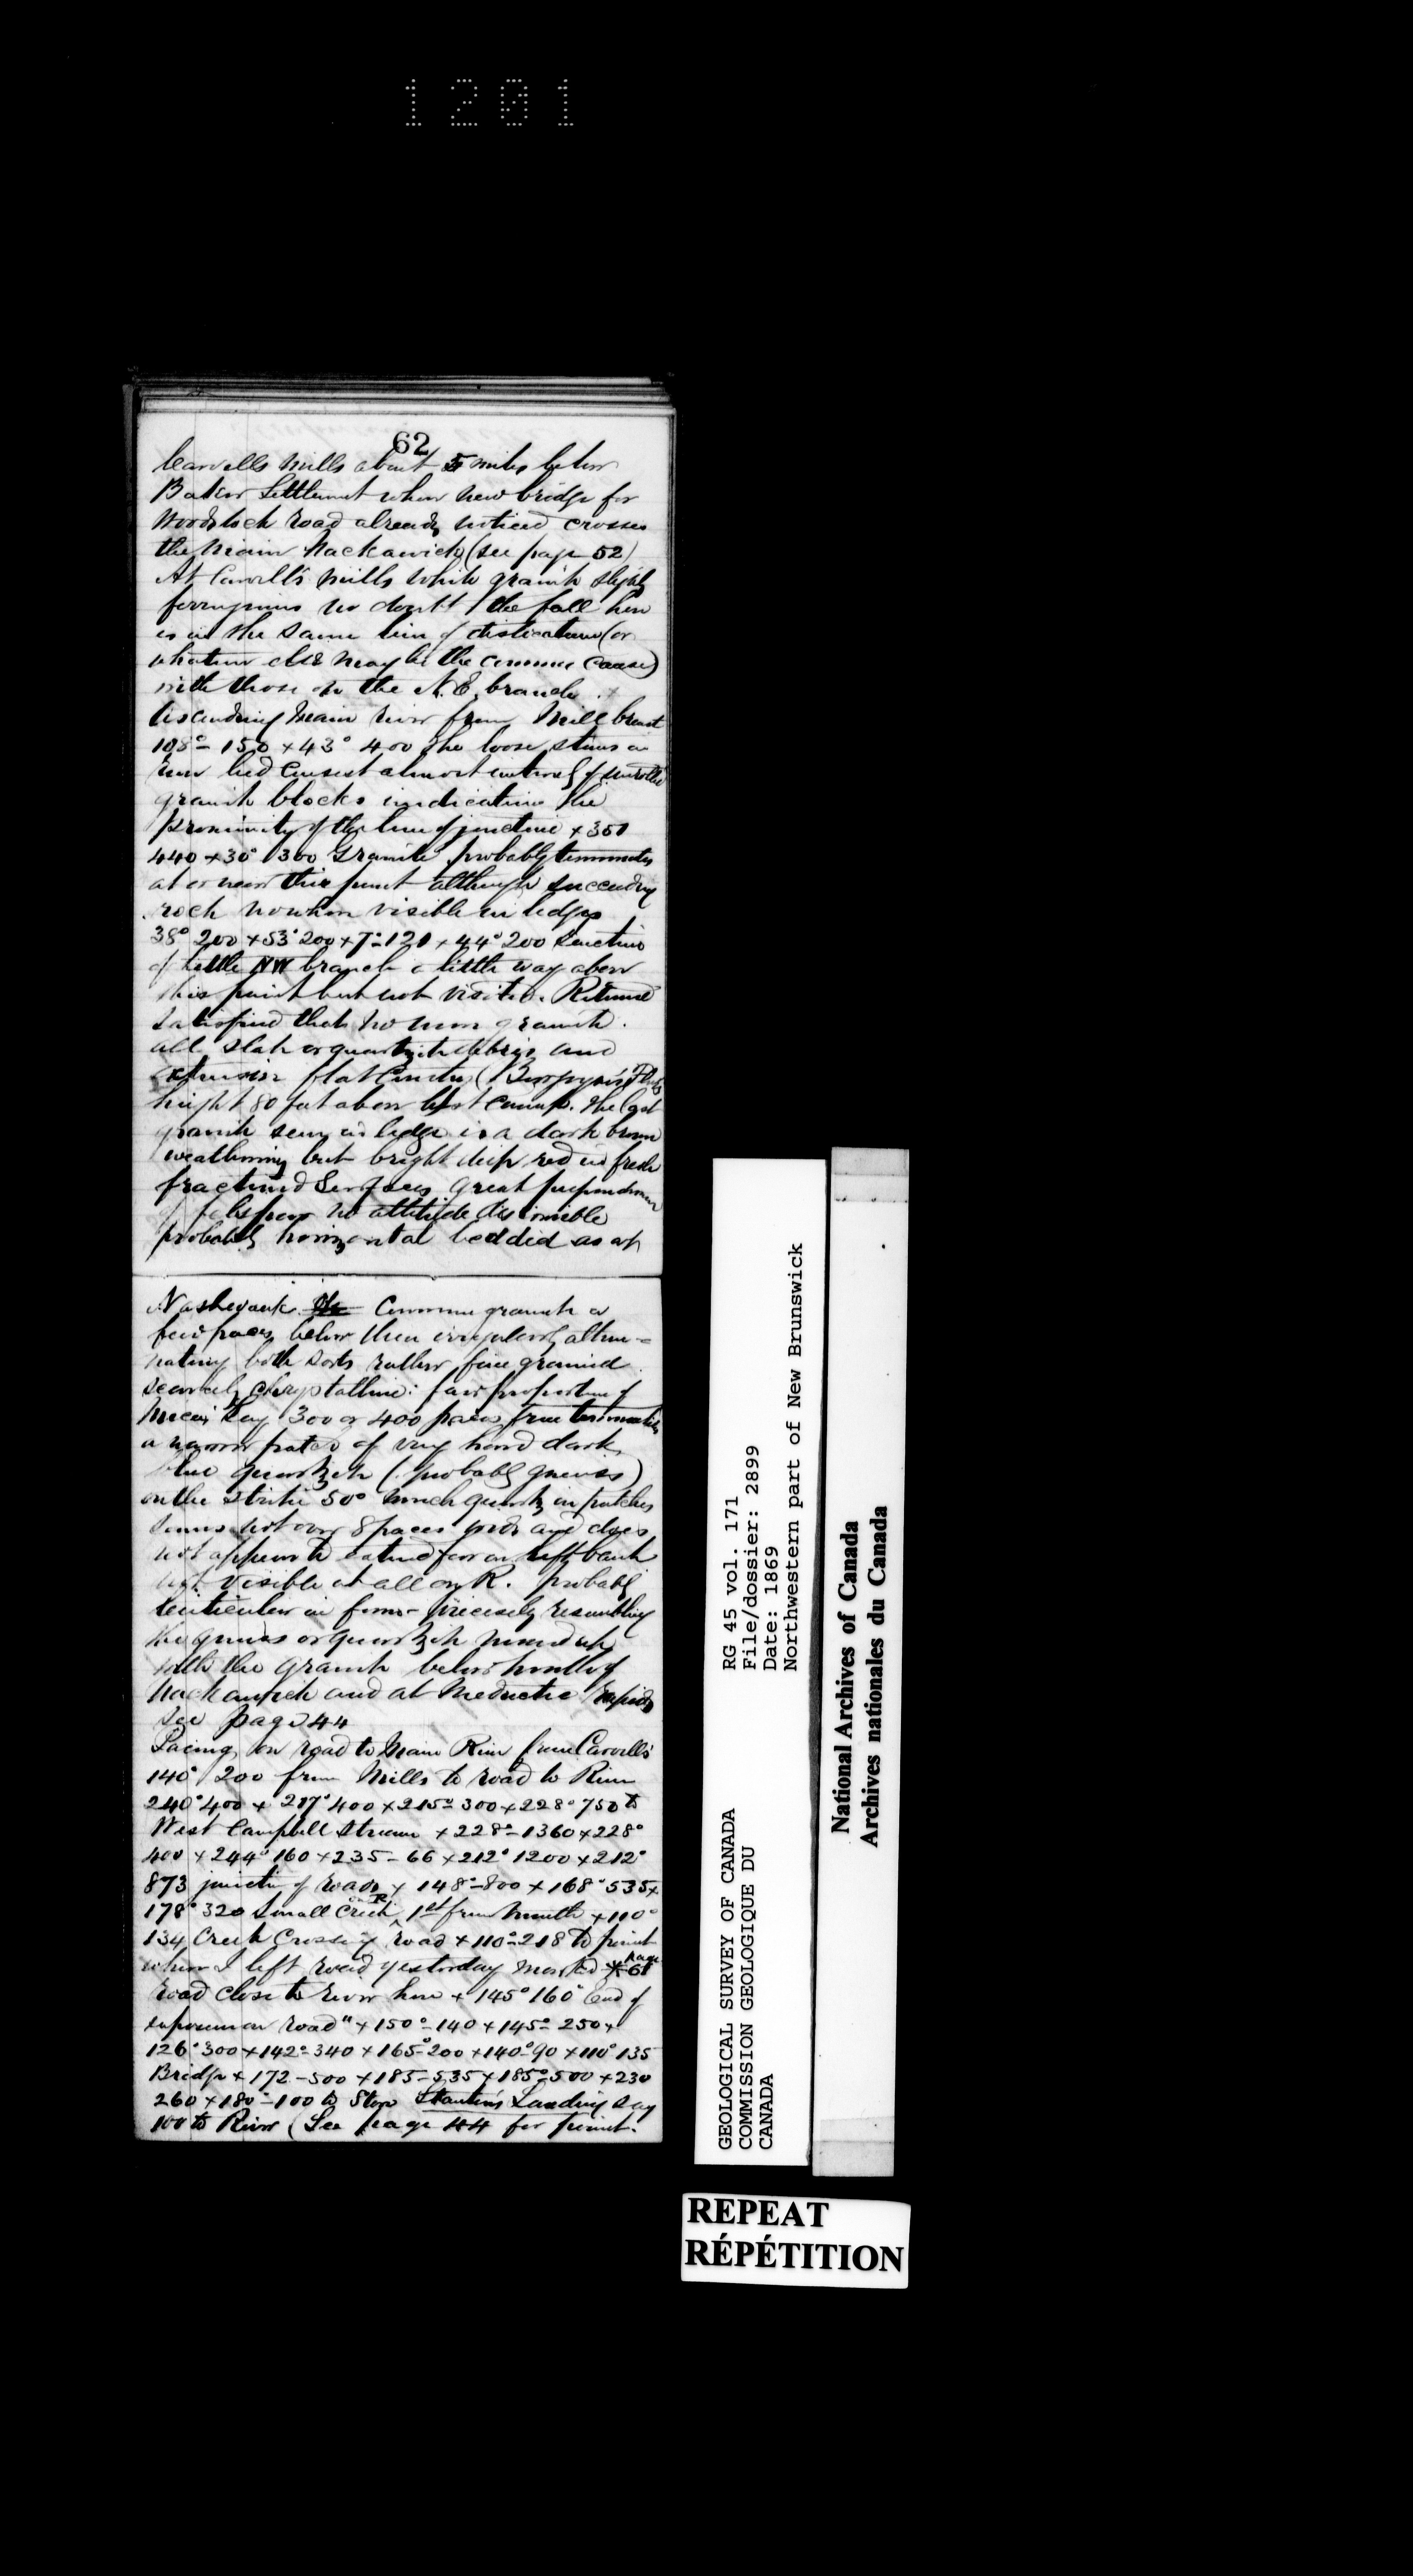 1201
62
Carvells Mills about 5 miles below
Baker Settlement where new bridge for
Woodstock road already noticed crosses
the Main Nackawick (see page 52)
At Carvell's mills white granite slightly
ferruginous no doubt the fall here
is in the same line of dislocation (or
whatever else may be the common cause)
with those on the N.E. branch.
Descending Main river from Mill breast
108°-150 × 43° 400 The loose stones in
river bed consist almost entirely of unrolled
granite blocks indicating the
proximity of the line of junction × 350
440 × 30° 300 Granite probably terminates
at or near this point although succeeding
rock nowhere visible in ledge
38° 200 × 53° 200 × 7°-120 × 44° 200 Junction
of little NW branch a little way above
this point but not visited. Returned
satisfied that no more granite.
all slate or quartzite debris and
extensive flat country (Flats
height 80 feet above last camp. The last
granite seen in ledge is a dark brown
weathering but bright deep red in fresh
fractured surfaces great preponderance
of felspar no attitude discernible
probably horizontal bedded as at
Nashwaak. The Common granite a
few paces below then irregularly alter=
nating both sorts rather fine grained
scarcely chrystalline: fair proportion of
mica. Say 300 or 400 paces from termination
a narrow patch of very hard dark
blue quartzite (probably gneiss)
on the strike 50° much quartz in patches
seems not over 8 paces wide and does
not appear to extend far on left bank
not visible at all on R. probably
lenticular in form - precisely resembling
the gneiss or quartzite mixed up
with the granite below mouth of
Nackawick and at Meductic Rapids
see page 44
Pacing on road to Main River from Carvells
140° 200 from Mills to road to River
240° 400 × 217° 400 × 215° 300 × 228° 750 to
West Campbell Stream × 228°-1360 × 228°
400 × 244° 160 × 235-66 × 212° 1200 × 212°
873 junction of roads × 148°-800 × 168° 535 ×
178° 320 Small Creek on R. 1st from Mouth × 110°
134 Creek Crossing road × 110°-218 to point
where I left road yesterday marked * page 61
road close to river here × 145° 160° End of
exposure on road" × 150°-140 × 145°-250 ×
126° 300 × 142°-340 × 165-200 × 140°-90 × 110° 135
Bridge × 172-500 × 185-535 × 185°-500 × 230
260 × 180°-100 to Store Stanton's Landing say
100 to River (See page 44 for point.
GEOLOGICAL SURVEY OF CANADA
COMMISSION GEOLOGIQUE DU
CANADA
RG 45 vol. 171
File/dossier: 2899
Date: 1869
Northwestern part of New Brunswick
National Archives of Canada
Archives nationales du Canada
REPEAT
RÉPÉTITION